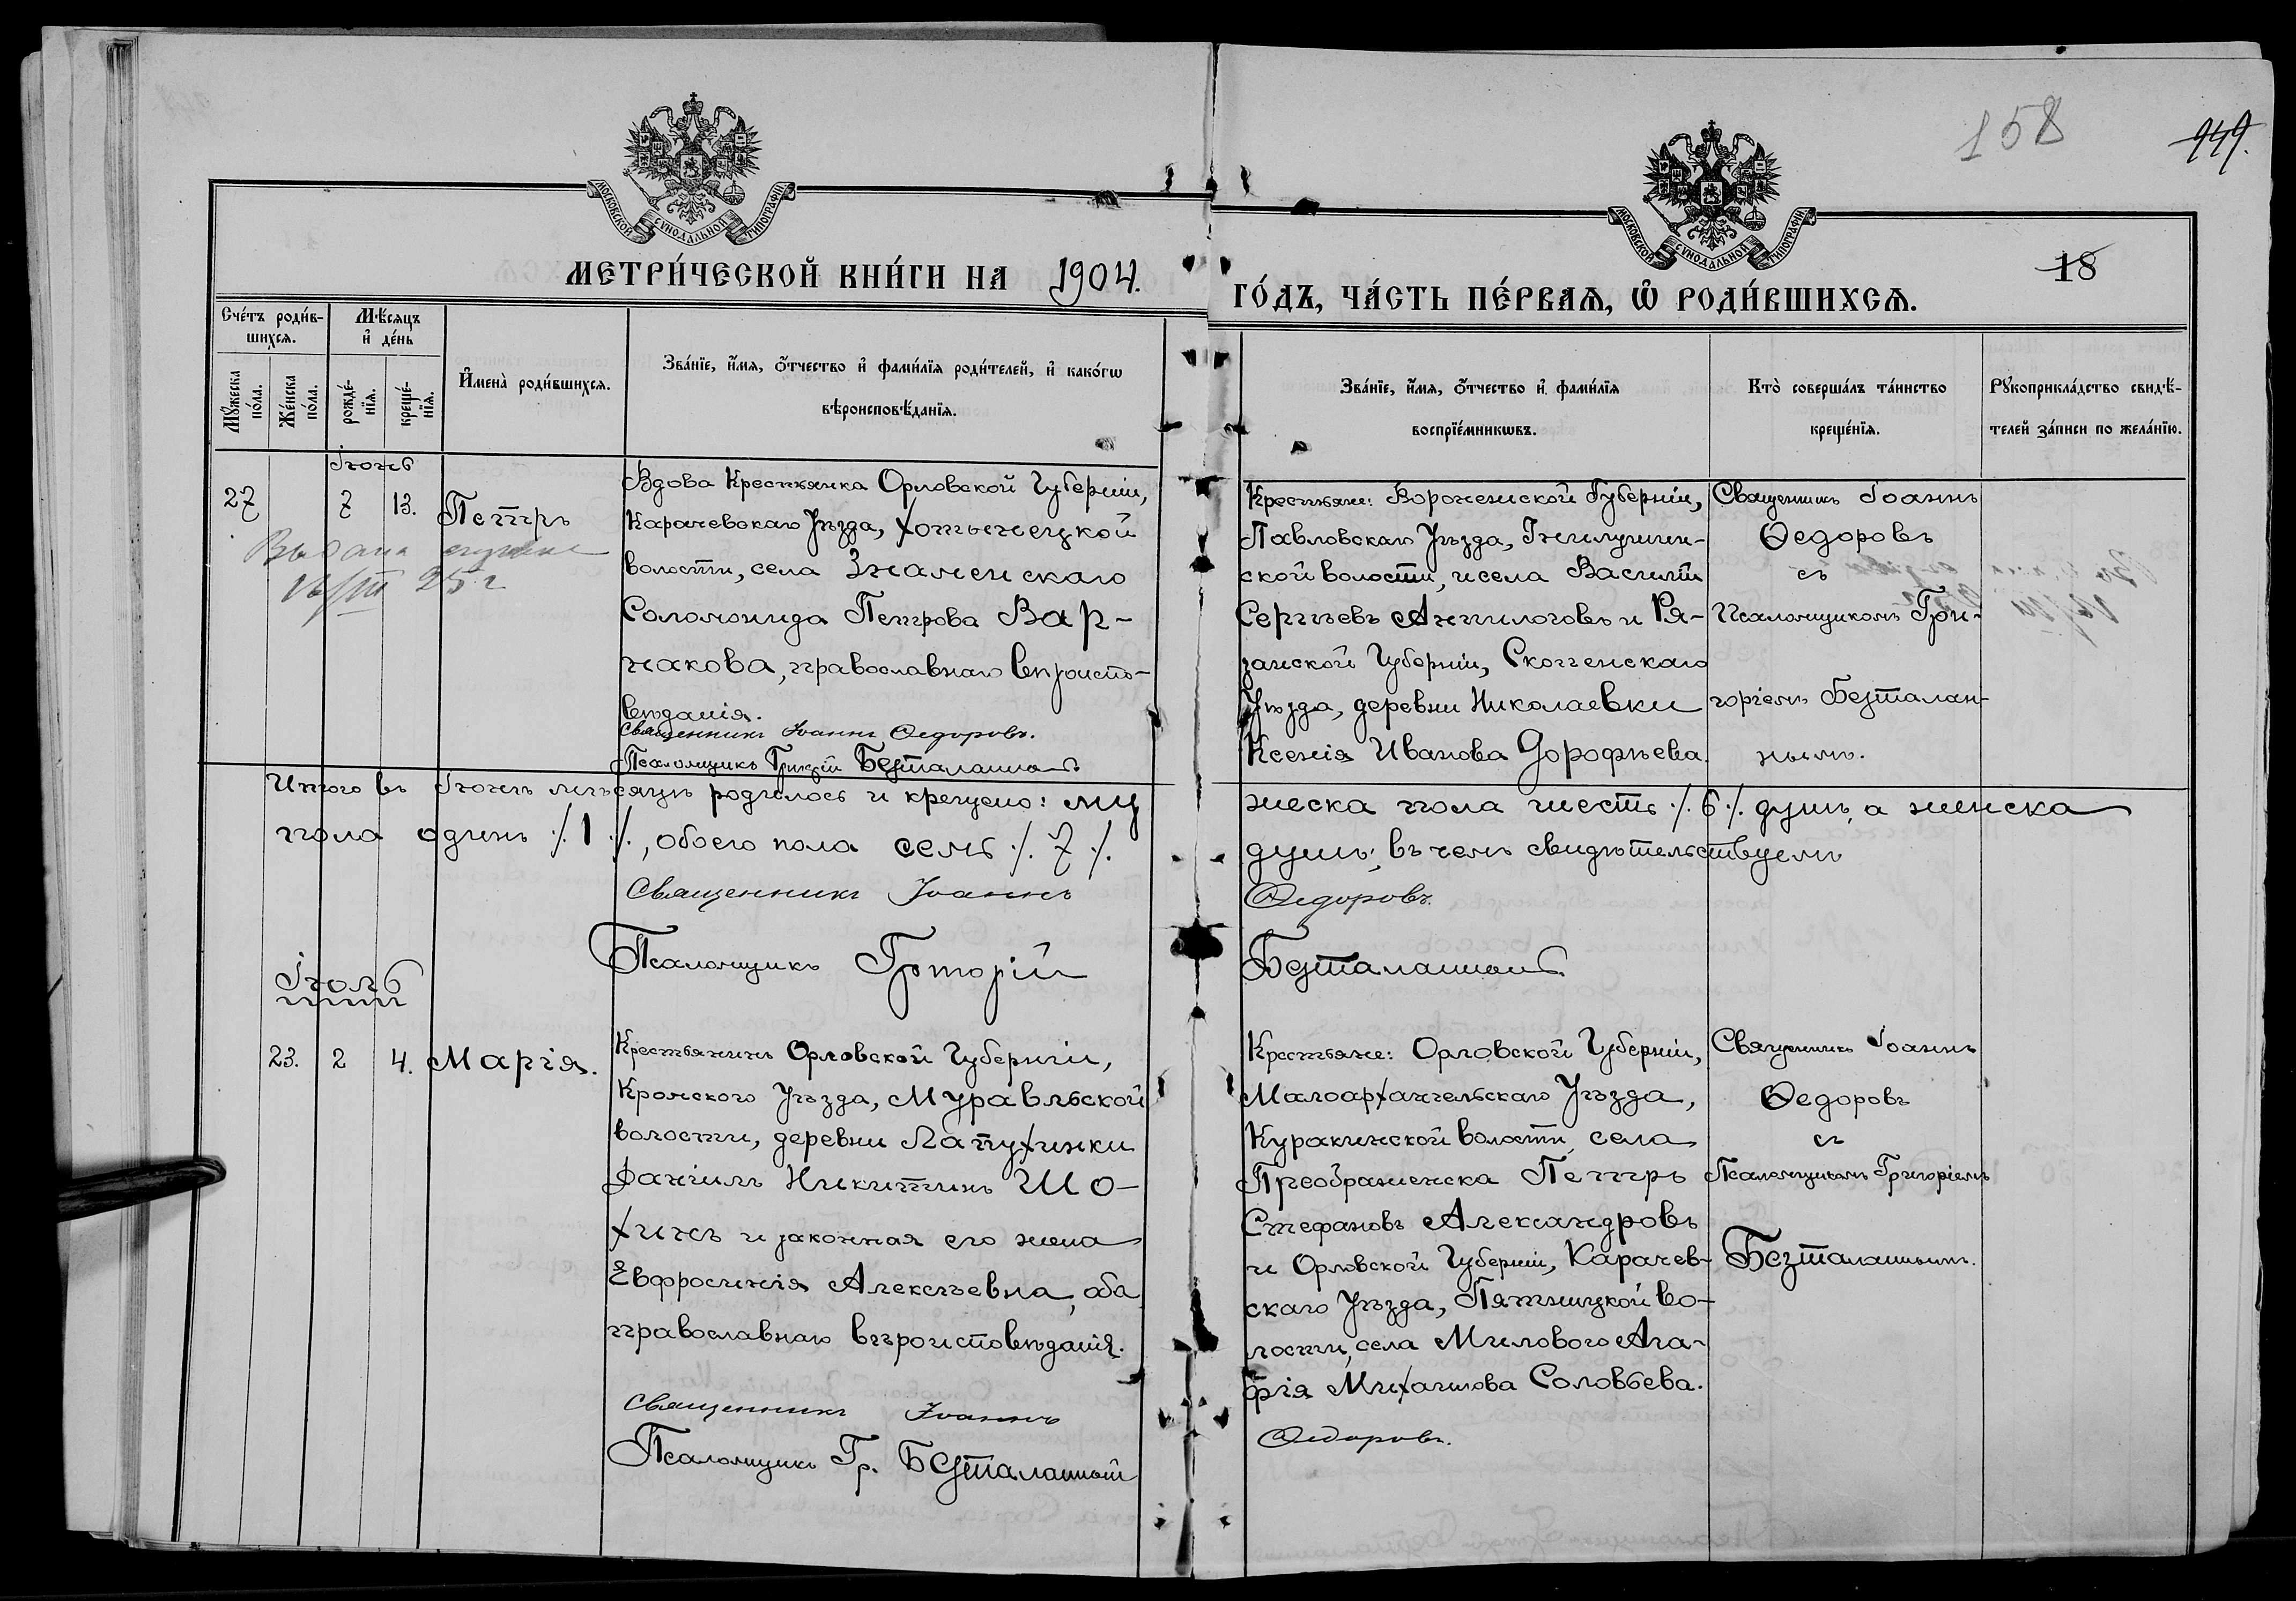 158
449.
МОСКОВСКОЙ СѴНОДАЛЬНОЙ ТИПОГРАФІИ
МОСКОВСКОЙ СѴНОДАЛЬНОЙ ТИПОГРАФІИ
18
МЕТРИ́ЧЕСКОЙ КНИ́ГИ НА 1904.
ГО́ДЪ, ЧА́СТЬ ПЕ́РВАЯ, Ѡ РОДИ́ВШИХСЯ.
Сче́тъ роди́в-
шихся.
Мѣ́сяцъ
и де́нь
Му́жеска
по́ла.
Же́нска
по́ла.
рожде́-
нїя.
креще́-
нїя.
Имена̀ роди́вшихся.
Зва́нїе, и́мя, о́тчество и фами́лїя роди́телей, и како́гѡ
вѣроисповѣ́данїя.
Зва́нїе, и́мя, о́тчество и фами́лїя
воспрїе́мникѡвъ.
Кто̀ соверша́лъ та́инство
креще́нїя.
Рꙋкоприкла́дство свидѣ́-
телей за́писи по жела́нїю.
Іюнь
27
7
13.
Петръ
Выдана
25 г
Вдова Крестьянка Орловской Губерніи,
Карачевскаго Уѣзда, Хотынецкой
волости, села Знаменскаго
Соломонида Петрова Вар-
накова, православнаго вѣроиспо-
вѣданія.
Священникъ Іоаннъ Ѳедоровъ.
Псаломщикъ Григорій Безталанный
Крестьяне: Воронежской Губерніи,
Павловскаго Уѣзда, Гнилушин-
ской волости, и села Василій
Сергѣевъ Анпилоговъ и Ря-
занской Губерніи, Скопенскаго
Уѣзда, деревни Николаевки
Ксенія Иванова Дорофѣева.
Священникъ Іоаннъ
Ѳедоровъ
съ
Псаломщикомъ Гри-
горіемъ Безталан-
нымъ.
Итого въ Іюнѣ мѣсяцѣ родилось и крещено: му
жеска пола шесть ·/. 6 ·/. душъ, а женска
пола одинъ ·/. 1 ·/., обоего пола семь ·/. 7 ·/.
душъ, въ чемъ свидѣтельствуемъ
Священникъ Іоаннъ
Ѳедоровъ.
Псаломщикъ Григорій
Безталанный
Іюль
23.
2
4.
Марія.
Крестьянинъ Орловской Губерніи,
Кромского Уѣзда, Муравльской
волости, деревни Лапухинки
Даніилъ Никитинъ Шо-
хинъ и законная его жена
Евфросинія Алексѣевна, оба
православнаго вѣроисповѣданія.
Священникъ Іоаннъ
Псаломщикъ Гр. Безталанный
Крестьяне: Орловской Губерніи,
Малоархангельскаго Уѣзда,
Куракинской волости, села
Преображенска Петръ
Стефановъ Александровъ
и Орловской Губерніи, Карачев-
скаго Уѣзда, Пятницкой во-
лости, села Милового Ага-
фія Михаилова Соловьева.
Ѳедоровъ.
Священникъ Іоаннъ
Ѳедоровъ
съ
Псаломщикомъ Григоріемъ
Безталаннымъ.